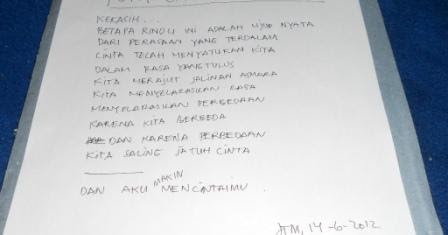 KEKASIH...
BETAPA RINDU INI ADALAH UJUD NYATA
DARI PERASAAN YANG TERDALAM
CINTA TELAH MENYATUKAN KITA
DALAM RASA YANG TULUS
KITA MERAJUT JALINAN ASMARA
KITA MENYELARASKAN RASA
MENYELARASKAN PERBEDAAN
KARENA KITA BERBEDA
DAN KARENA PERBEDAAN
KITA SALING JATUH CINTA
DAN AKU MAKIN MENCINTAIMU.
14-6-2012